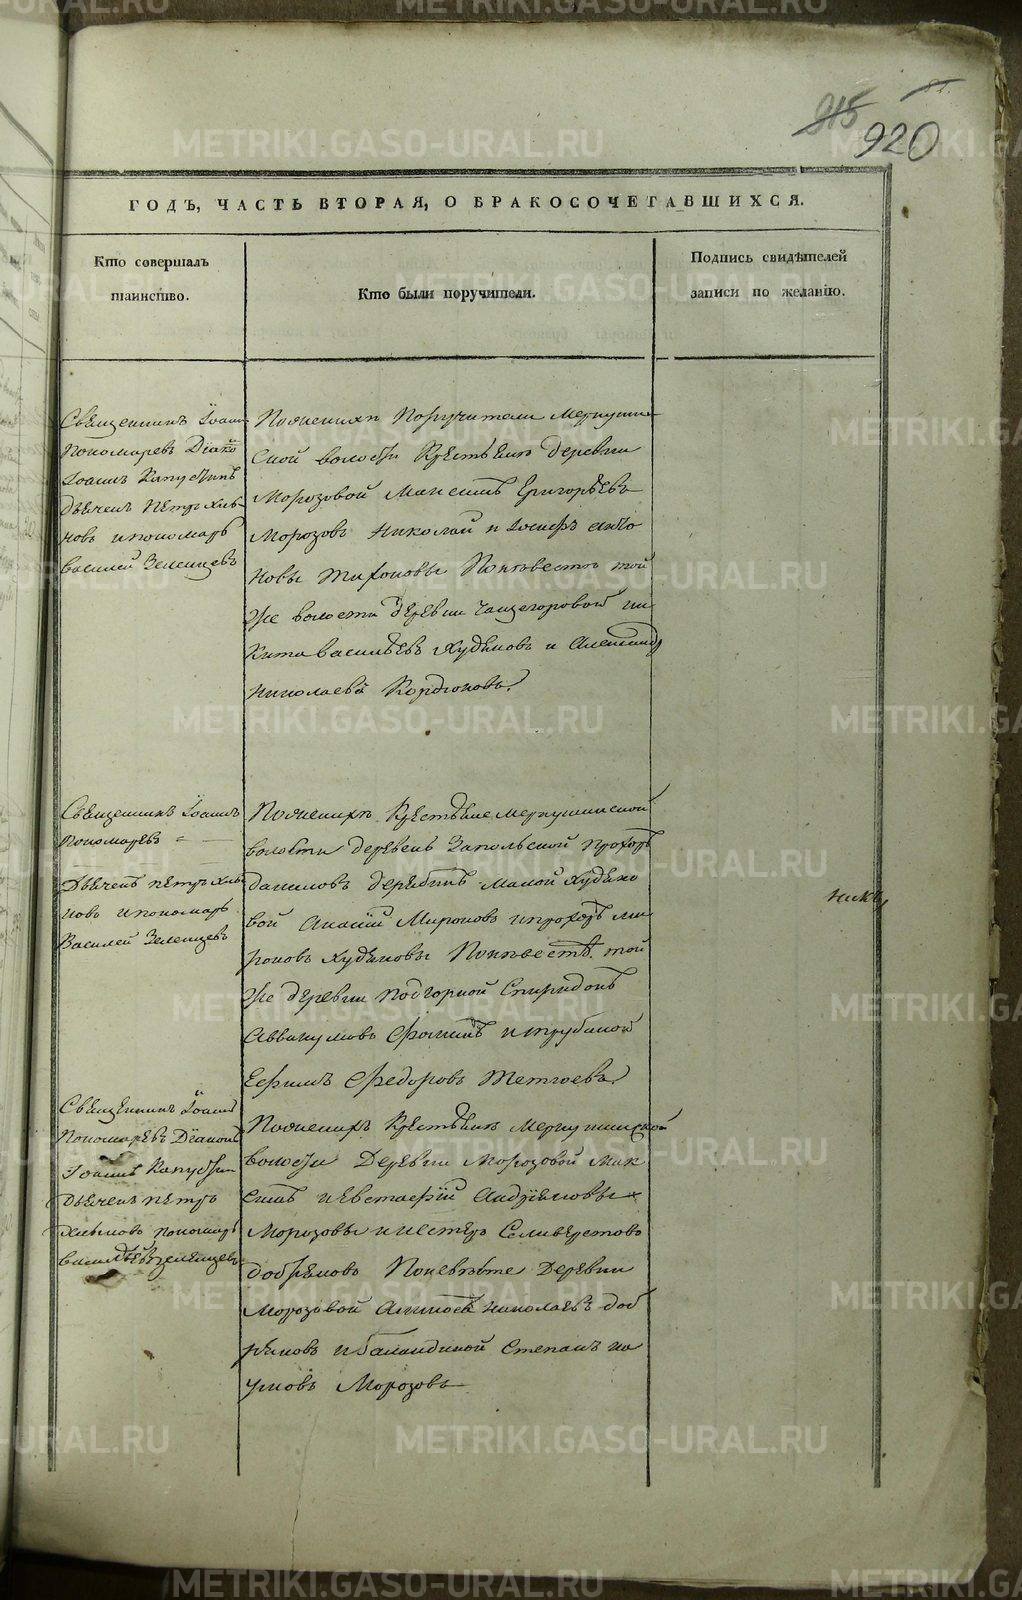 915
920
ГОДЪ, ЧАСТЬ ВТОРАЯ, О БРАКОСОЧЕТАВШИХСЯ.
Кто совершалъ
таинство.
Кто были поручители.
Подпись свидѣтелей
записи по желанію.
Священникъ Іоаннъ
Пономаревъ Діако
Іоаннъ Капустинъ
Дьячекъ Петръ Хлы
новъ и пономарь
Василей Зеленцевъ
Поженихѣ Поручители Меркуши
ской волости Крестьяне деревни
Морозовой Максимъ Григорьевъ
Морозовъ Николай и Іосифъ
новы Тихоновы Поневестѣ той
же волости деревни Ни
кита Васильевъ Худяковъ и Александръ
Николаевъ Кордюковъ.
Священникъ Іоаннъ
Пономаревъ
Дьячекъ Петръ Хлы
новъ и пономарь
Василей Зеленцевъ
Поженихѣ Крестьяне Меркушинской
волости деревень Запольской Прохоръ
Даниловъ Дерябинъ Малой Худяко
вой Мироновъ и Прохоръ Ми
роновъ Худяковы Поневестѣ той
же деревни Подгорной Спиридонъ
Аввакумовъ Фоминъ и Трубиной
Ефимъ Федоровъ
Священникъ Іоаннъ
Пономаревъ Діаконъ
Іоаннъ Капустин
Дьячекъ Петръ
Хлыновъ пономарь
Василей Зеленцевъ
Поженихѣ Крестьяне Меркушинской
волости Деревни Морозовой Мак
симъ и Евстафій Андреяновы
Морозовы и Нестеръ Селиверстовъ
Добрыновъ Поневѣсте Деревни
Морозовой Николаевъ Доб
рыновъ и Баландиной Степанъ На
умовъ Морозовъ
METRIKI.GASO-URAL.RU